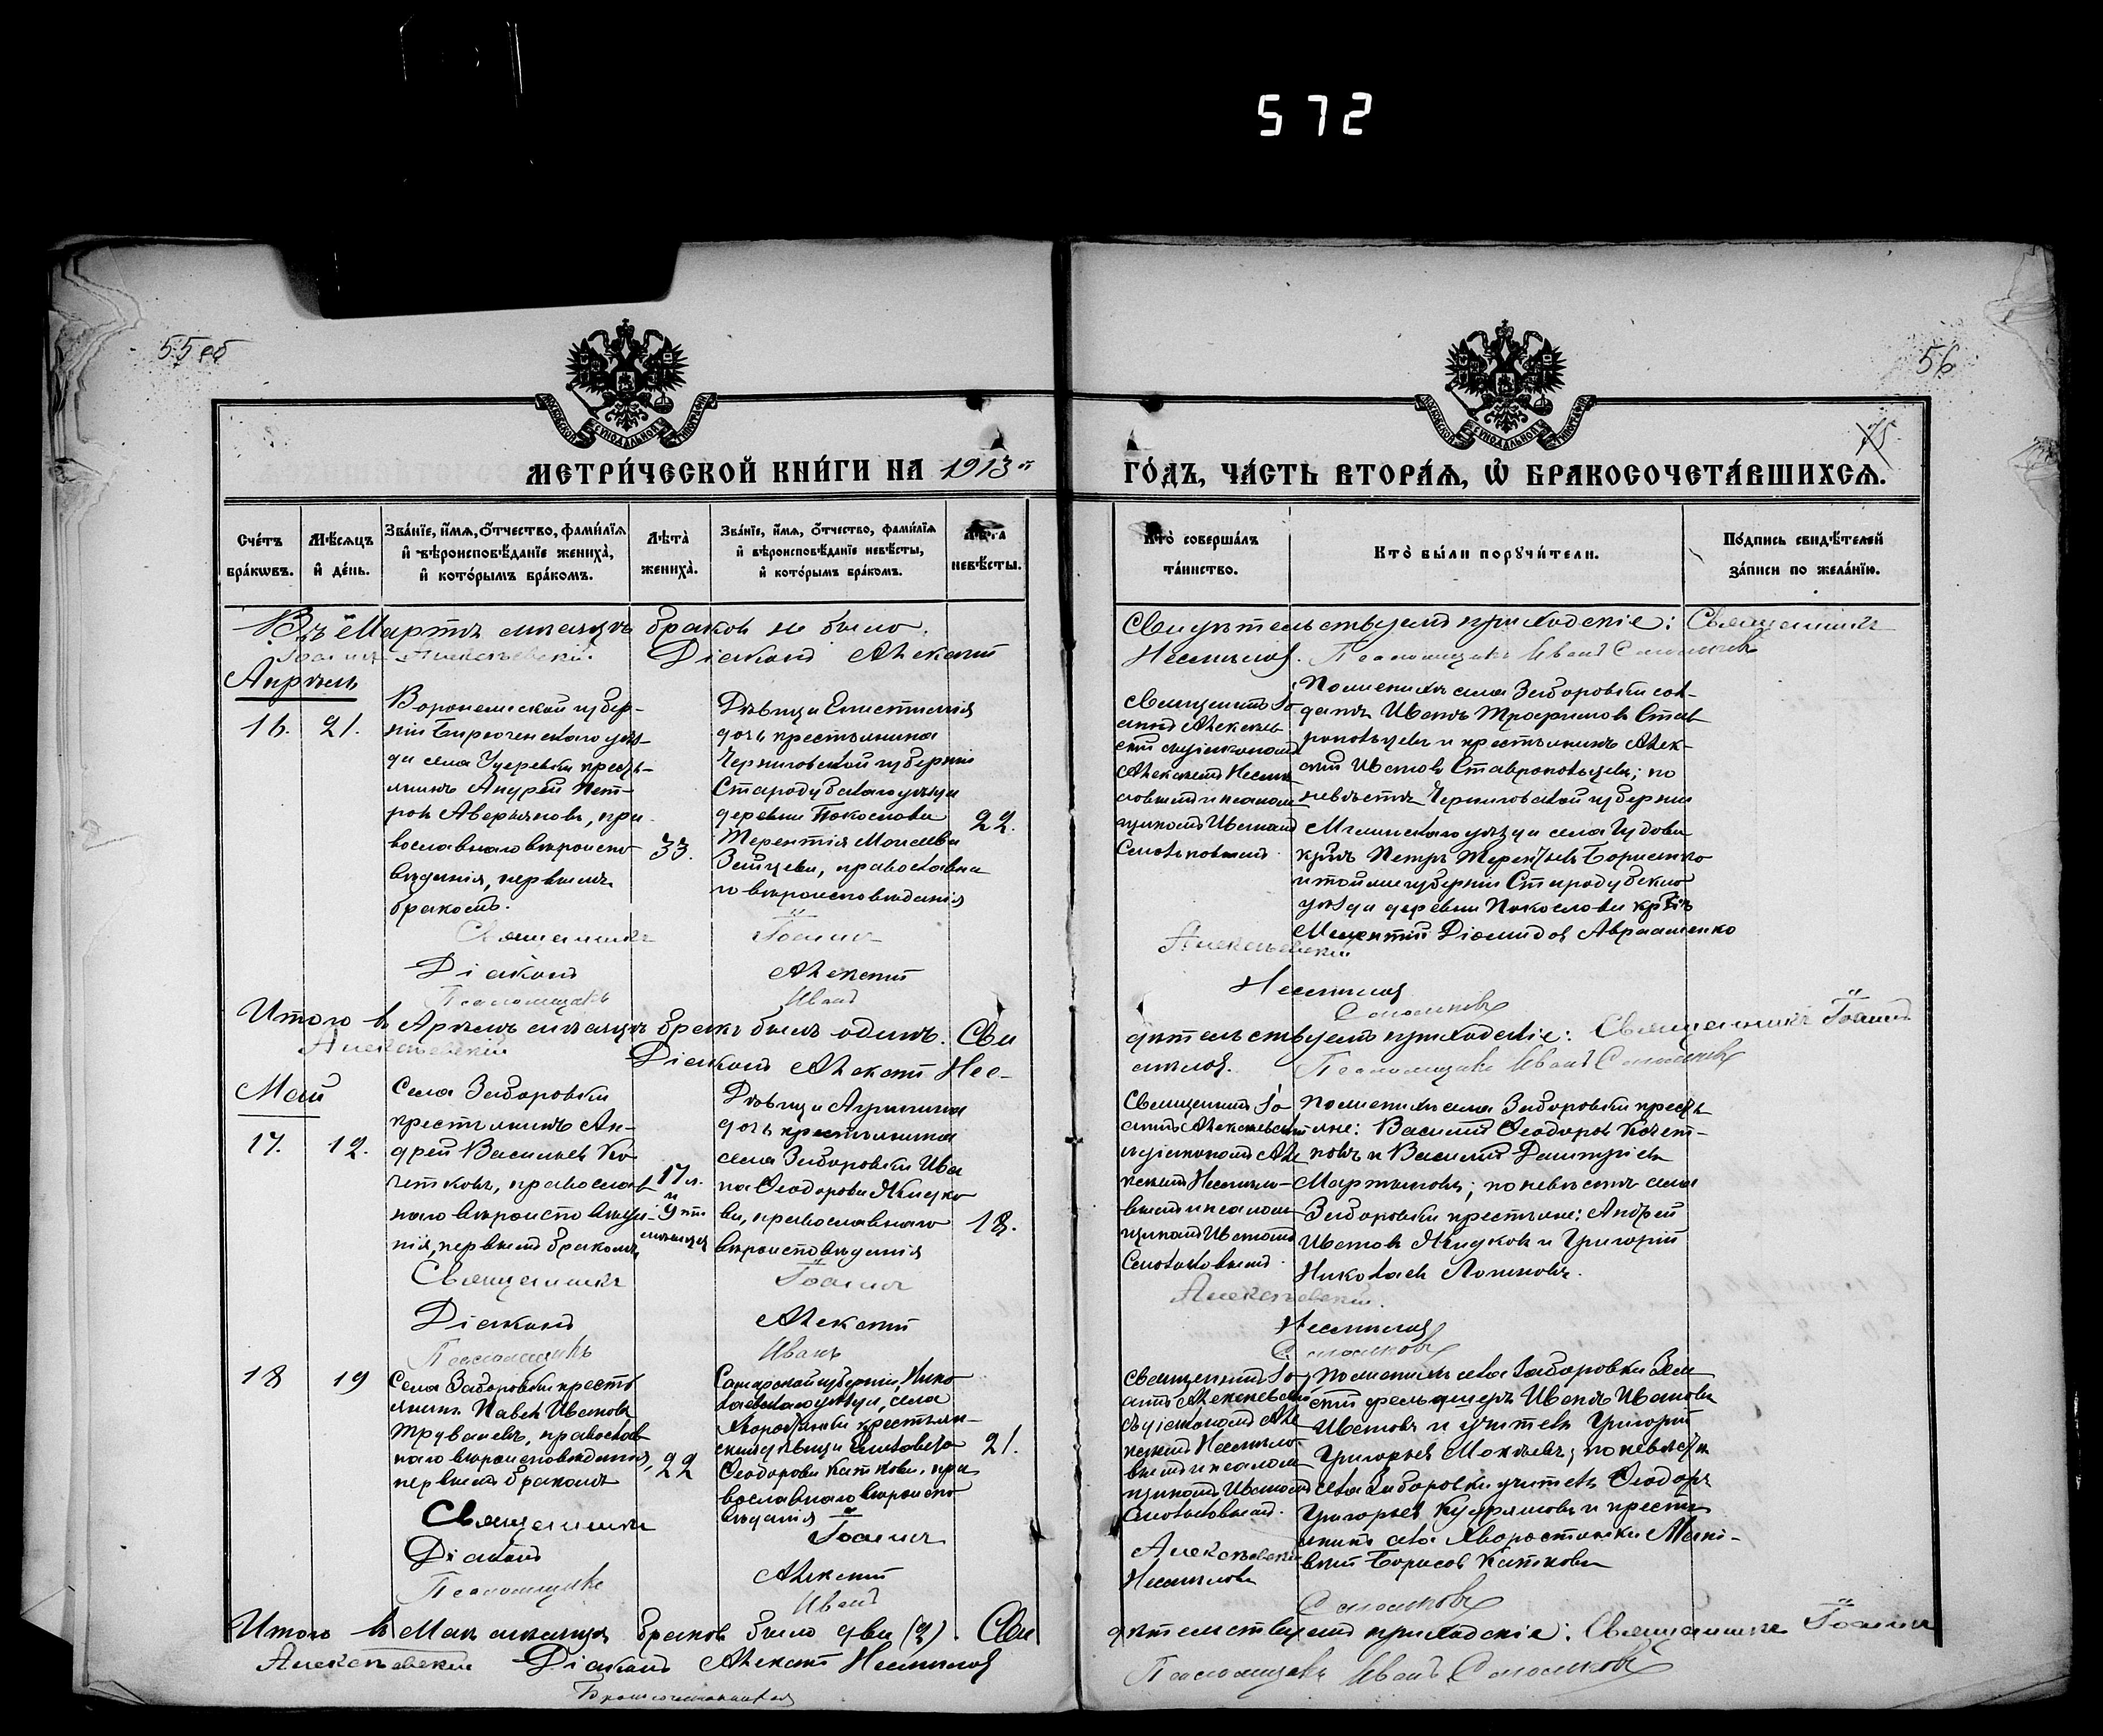 572
55 об
56
75
МЕТРИ́ЧЕСКОЙ КНИ́ГИ НА 1913 й
ГО́ДЪ, ЧА́СТЬ ВТОРА́Я, Ѡ҆ БРАКОСОЧЕТА́ВШИХСЯ.
Сче́тъ бра́кѡвъ.
Мѣ́сяцъ и҆ де́нь.
Зва́нїе, и҆́мя, ѻ҆́тчество, фами́лїя
и҆ вѣроисповѣ́данїе жениха̀,
и҆ кото́рымъ бра́комъ.
Лѣта̀
жениха̀.
Зва́нїе, и҆́мя, ѻ҆́тчество, фами́лїя
и҆ вѣроисповѣ́данїе невѣ́сты,
и҆ кото́рымъ бра́комъ.
Лѣта̀
невѣ́сты.
Кто̀ соверша́лъ
та́инство.
Кто̀ бы́ли порꙋчи́тели.
По́дпись свидѣ́телей
за́писи по жела́нїю.
Въ Мартѣ мѣсяцѣ браков не было.
Свидѣтельствуемъ приходскіе: Священникъ
Іоаннъ Алексѣевскій Діаконъ Алексѣй
Несмѣлов. Псаломщикъ Иванъ Самойловъ
Апрѣль
16.
21.
Воронежской губер-
ніи Бирюченскаго уѣз-
да села кресть-
янинъ Андрей Пет-
ров Аверьянов, пра-
вославнаго вѣроиспо-
вѣданія, первымъ
бракомъ.
33.
Дѣвица
дочь крестьянина
Черниговской губерніи
Стародубскаго уѣзда
деревни Покослова
Терентія Моисеева
Зайцева, православна-
го вѣроисповѣданія
22.
Священникъ Іо-
аннъ Алексѣев-
скій съ діакономъ
Алексѣемъ Несмѣ-
ловымъ и псалом-
щикомъ Иваномъ
По женихѣ села Заборовки сол-
датъ Иванъ Трофимов Став-
ропольцевъ и крестьянинъ Алек-
сѣй Иванов Ставропольцевъ; по
невѣстѣ Черниговской губерніи
Мглинскаго уѣзда села
кр-нъ Петръ Терентьев Борисенко
и той же губерніи Стародубскаго
уѣзда деревни Покослова кр-нъ
Діомидов Авраменко
Священникъ Іоаннъ Алексѣевскій
Діаконъ Алексѣй Несмѣлов
Псаломщикъ Иванъ
Итого в Апрѣлѣ мѣсяцѣ бракъ былъ одинъ. Сви-
дѣтельствуемъ приходскіе: Священникъ Іоаннъ
Алексѣевскій Діаконъ Алексѣй Нес-
мѣлов. Псаломщикъ Иванъ
Май
17.
12.
Села Заборовки
крестьянинъ Ан-
дрей Васильев Ко-
четковъ, православ-
наго вѣроисповѣда-
нія, первымъ бракомъ
17 л.
и
9 ть
мѣсяцев
Дѣвица Агрипина
дочь крестьянина
села Заборовки Ива-
на Ѳеодорова Жидко-
ва, православнаго
вѣроисповѣданія
18.
Священникъ Іо-
аннъ Алексѣевскій
съ діакономъ Але-
ксѣемъ Несмѣло-
вымъ и псалом-
щикомъ Иваномъ
По женихѣ села Заборовки кресть-
яне: Василій Ѳеодоров Кочет-
ковъ и Василій Димитріев
Мартыновъ; по невѣстѣ села
Заборовки крестьяне: Андрей
Иванов Жидков и Григорій
Николаев Логиновъ.
Священникъ Іоаннъ Алексѣевскій.
Діаконъ Алексѣй Несмѣлов
Псаломщикъ Иванъ
18
19
Села Заборовки кресть-
янинъ Павел Иванов
Труваневъ, православ-
наго вѣроисповѣданія,
первымъ бракомъ
22
Самарской губерніи, Нико-
лаевскаго уѣзда, села
Хворостянки крестьян-
ская дѣвица Елизавета
Ѳеодорова Каткова, пра-
вославнаго вѣроиспо-
вѣданія
21.
Священникъ Іо-
аннъ Алексѣевскій
съ діакономъ Але-
ксѣемъ Несмѣло-
вымъ и псалом-
щикомъ Иваномъ
По женихѣ села Заборовки Зем-
скій фельдшеръ Иванъ Иванов
Иванов и учитель Григорій
Григорьев Мокѣевъ; по невѣстѣ
села Заборовки учитель Ѳеодоръ
Григорьев и кресть-
янинъ села Хворостянки
Борисов Катковъ
Священникъ Іоаннъ Алексѣевскій
Діаконъ Алексѣй Несмѣловъ
Псаломщикъ Иванъ
Итого в Маѣ мѣсяцѣ браков было два (2). Сви-
дѣтельствуемъ приходскіе: Священникъ Іоаннъ
Алексѣевскій Діаконъ Алексѣй Несмѣлов
Псаломщикъ Иванъ